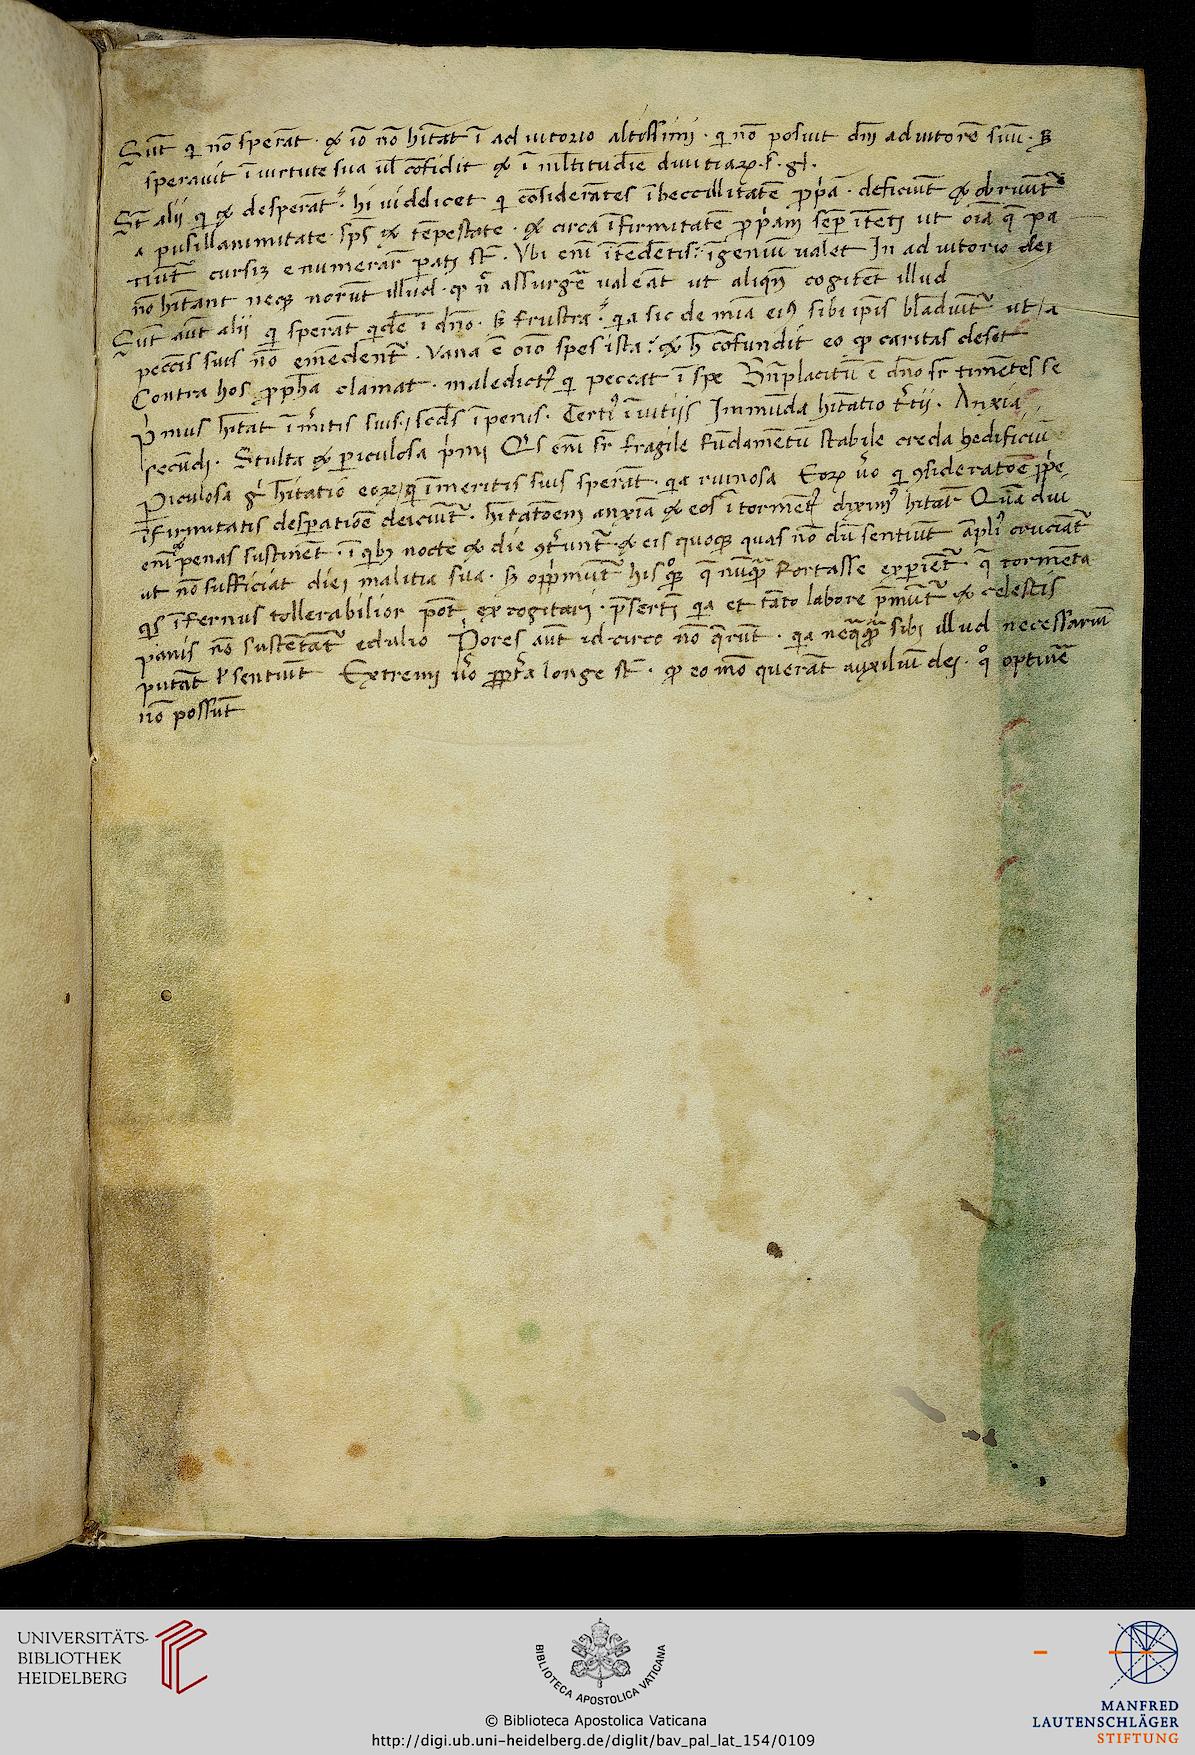 Sunt q̇ nō sperāt · & iō nō hītāt ī adiutorio altissimi · q̇ nō posuit dm̄ adiutorē suū · ꝫ
speravit ī virtute sua ul̄ cōfidit & ī ml̄titudīe divitiaꝝ · s · gl̄ ·
St̄ alij q̇ & desperāt · hi videlicet q̇ cōsiderātes ībeccillitatē ꝓp̄ā · deficiūt & obruūt᷑
a pusillanimitate sp̄s & tēpestate · & circa īfirmitatē ꝓp̄am semp̄ ītēti ut oīā q̄ pa
tiūt᷑ cursiꝫ enumerar̄ parati st̄ · Ubi eni᷑ ītēdētis · īgeniū valet In adiutorio dei
nō hītant neqꝫ norūt illud · qꝫ n̄ assurgē valeāt ut aliqn̄ cogitēt illud
Sūt aūt alij q̇ sperāt q̇dē ī dn̄o · ꝫ frustra · q̇a sic de mīa eiꝰ sibi ip̄is blādiūt᷑ ut / a
pecc̄is suis nō emēdent᷑ · Vana ē oīo spes ista · & h̄ cōfundit eo qꝫ caritas desūt
Contra hos ꝓph̄a clamat · maledictꝰ q̇ peccat ī spe Bn̄placitū ē dn̄o sr̄ timētes se
P̄mus hītat ī m̄itis suis · / scd̄s ī penis · Terti᷑ ī vitijs Immūda hītatio t̄tij · Anxia
secūdi · Stulta & ꝑiculosa p̄mi Q̇s eni᷑ sr̄ fragile fūdamētū stabile creda hedificiū
Piculosa g̊ hītatio eoꝝ / q̇ ī meritis suis sperāt · q̇a ruinosa Eoꝝ v̄o q̇ ꝯsideratōē ꝓp̄e
īfirmitatis desꝑatiōē deiciūt᷑ · hītatōem anxiā & eos ī tormētꝰ dixim᷑ hitar̄ Quā diu
eni᷑ & penas sustinēt · ī q̇bꝫ nocte & die ꝯt̄unt᷑ · & eis quoqꝫ quas nō dū sentiūt āpli᷑ cruciāt᷑
ut nō sufficiat diei malitia sua · ꝫ opp̄mūt᷑ his qꝫ q̄ nūq̄ fortasse exꝑiēt᷑ · q̄ tormēta
q̇s īfernus tollerabilior pōt excogitari · p̄sertī q̇a et tāto labore p̄mūt᷑ & celestis
panis nō sustētāt᷑ edulio P̄ores aūt idcirco nō q̄rūt · q̇a neq̄q̄ sibi illud necessariū
putāt ł sentiūt Extremi v̄o ꝓpt̄a longe st̄ · qꝫ eo mō querāt auxiliū dei · q̊ optinē
nō possūt
UNIVERSITÄTS-
BIBLIOTHEK
HEIDELBERG
BIBLIOTECA APOSTOLICA VATICANA
MANFRED
LAUTENSCHLÄGER
STIFTUNG
© Biblioteca Apostolica Vaticana
http://digi.ub.uni-heidelberg.de/diglit/bav_pal_lat_154/0109